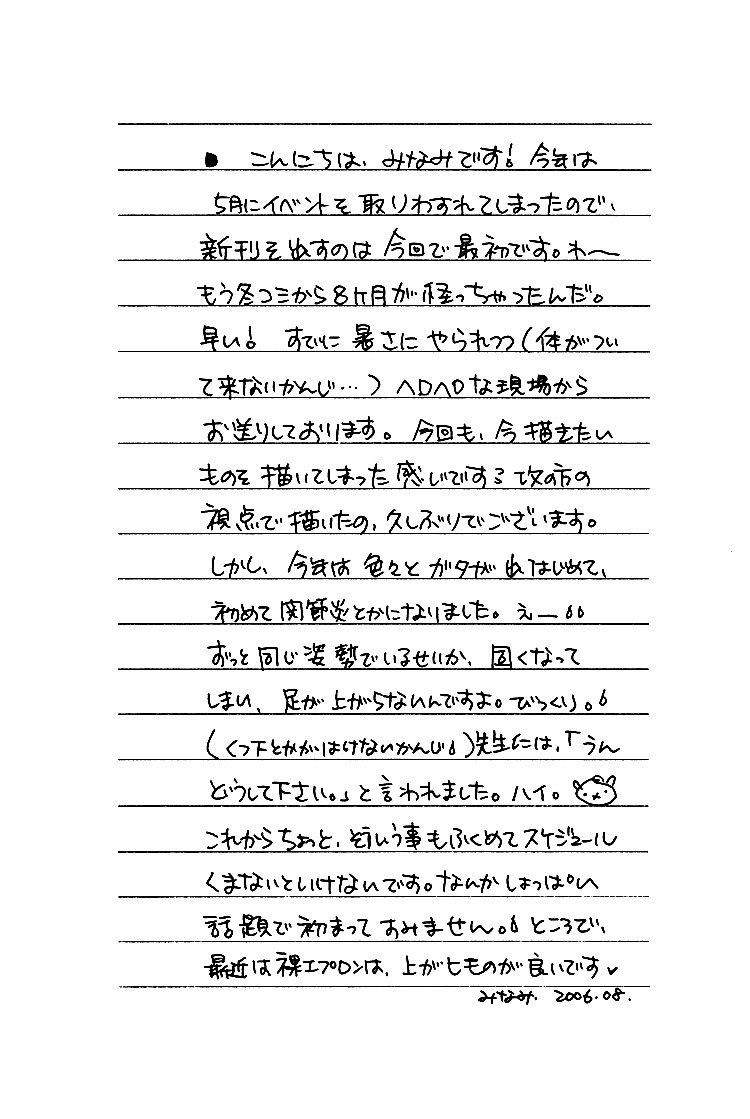 ● こんにちは、みなみです! 今年は
5月にイベントを取りわすれてしまったので、
新刊を出すのは今回で最初です。わ〜
もう冬コミから8ヶ月が経っちゃったんだ。
早い! すでに暑さにやられつつ(体がつい
て来ないかんじ…)ヘロヘロな現場から
お送りしております。今回も、今描きたい
ものを描いてしまった感じでする攻の方の
視点で描いたの、久しぶりでございます。
しかし、今年は色々とガタが出はじめて、
初めて関節炎とかになりました。えー
ずっと同じ姿勢でいるせいか、固くなって
しまい、足が上がらないんですよ。びっくり。
(くつ下とかがはけないかんじ)先生には、「うん
どうして下さい。」と言われました。ハイ。
これからちょっと、そういう事もふくめてスケジュール
くまないといけないです。なんかしょっぱい
話題で初まってすみません。ところで、
最近は裸エプロンは、上がヒモのが良いです♥
みなみ. 2006.08.